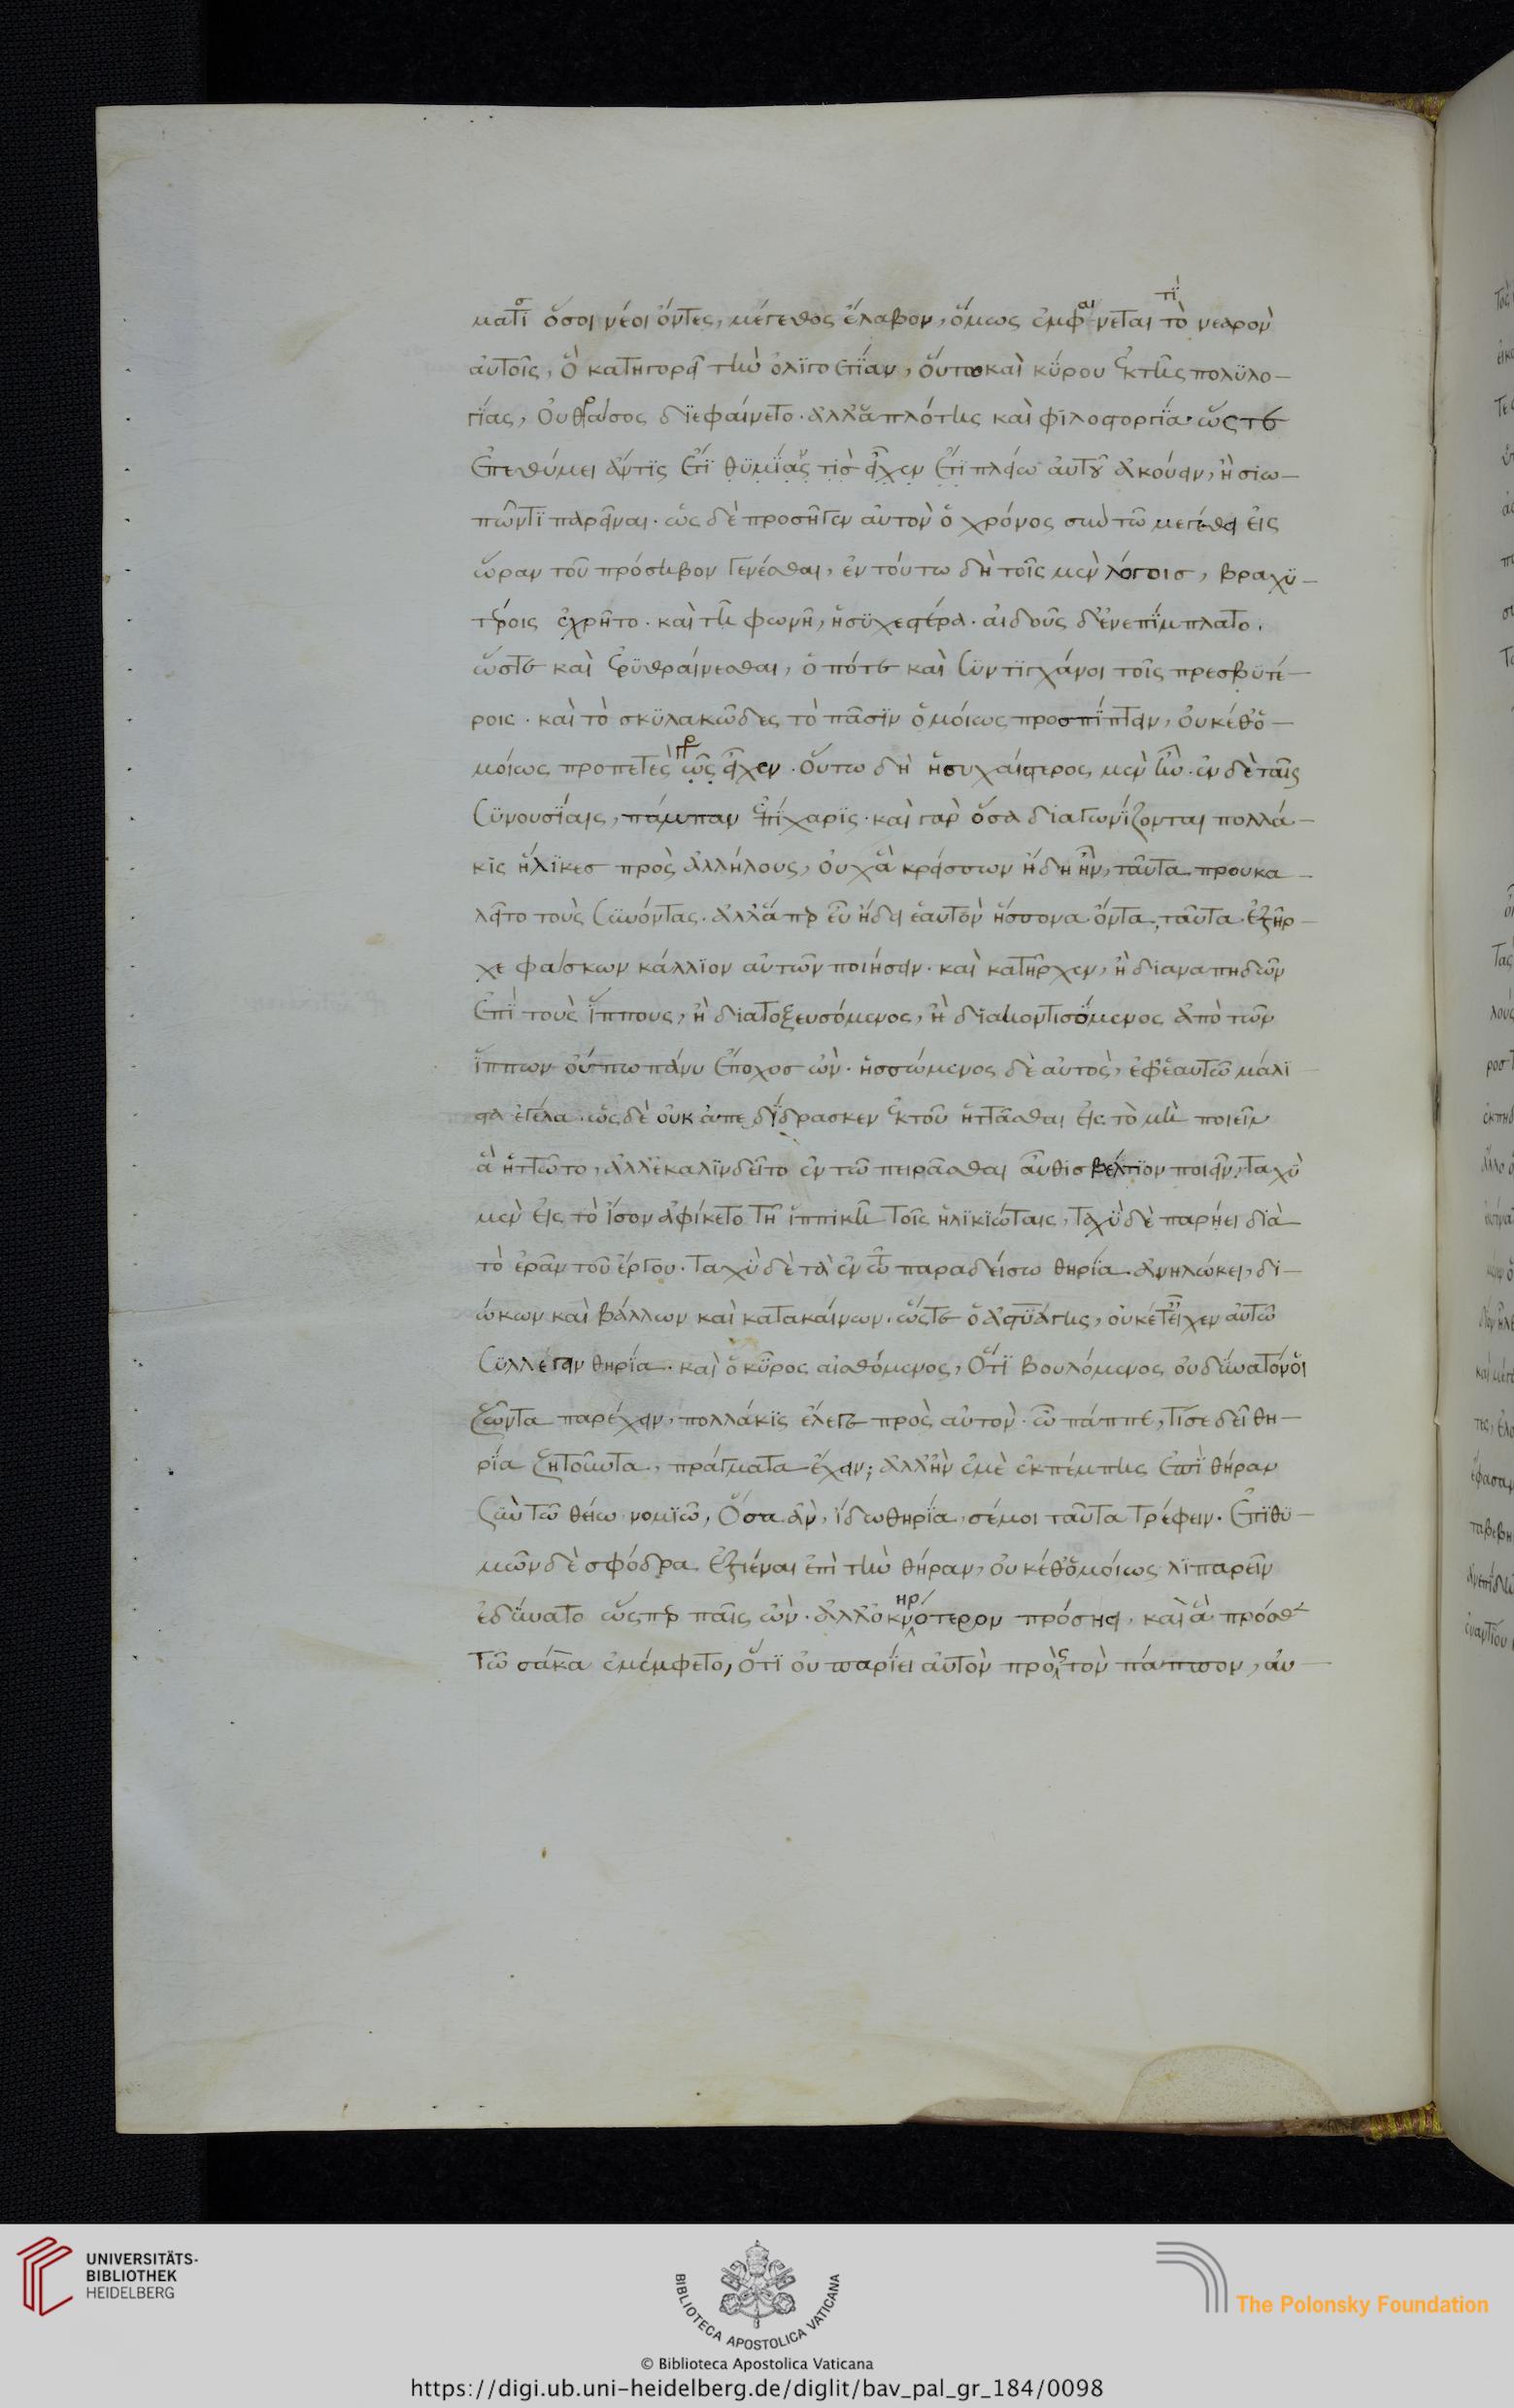 ματι ὅσοι νέοι ὄντες, μέγεθος ἔλαβον, ὅμως ἐμφαίνεται τὸ νεαρὸν
τὶ
αὐτοῖς, ὃ κατηγορεῖ τὴν ὀλϊγοετΐαν, οὕτω καὶ κύρου ἐκ τῆς πολϋλο–
γίας, οὐ θράσος δϊεφαίνετο. ἀλλ' ἁπλότης καὶ φιλοστοργΐα. ὥςτε
ἐπεθύμει ἄν τϊς ἔτϊ θϋμΐας τὶσ εἶχεν ἔτϊ πλείω αὐτοῦ ἀκούειν, ἢ σιω–
πῶντϊ παρεῖναι. ὡς δὲ προσῆγεν αὐτὸν ὁ χρόνος σὺν τῶ μεγέθει εἰς
ὥραν τοῦ πρόσηβον γενέσθαι, ἐν τούτω δὴ τοῖς μὲν λόγοισ, βραχϋ–
τέροις ἐχρῆτο. καὶ τῆ φωνῆ, ἡσϋχεστέρα. αἰδοῦς δ' ἐνεπΐμπλατο.
ὥστε καὶ ἐρϋθραίνεσθαι, ὁπότε καὶ σϋντϊγχάνοι τοῖς πρεσβϋτέ–
ροις. καὶ τὸ σκϋλακῶδες τὸ πᾶσϊν ὁμοίως προσπΐπτειν, οὐκέθ' ὁ–
μοίως προπετὲς ὡς εἶχεν. οὕτω δὴ ἡσυχαίτερος μὲν ἦν. ἐν δὲ ταῖς
σϋνουσΐαις, πάμπαν ἐπΐχαρϊς. καὶ γὰρ ὅσα διαγωνΐζονται πολλά–
κϊς ἥλϊκεσ πρὸς ἀλλήλους, οὐχ ἃ κρείσσων ἤδη ἦν, ταῦτα προυκα–
λεῖτο τοὺς σϋνόντας. ἀλλ' ἅπερ εὖ ἤδει ἑαυτὸν ἥσσονα ὄντα, ταῦτα ἐξῆρ–
χε φάσκων κάλλϊον αὐτῶν ποιήσειν. καὶ κατῆρχεν, ἢ διαναπηδῶν
ἐπὶ τοὺς ἵππους, ἢ διατοξευσόμενος, ἢ διακοντισόμενος ἀπὸ τῶν
ἵππων οὔπω πάνυ ἔποχοσ ὢν. ἡσσώμενος δὲ αὐτὸς, ἐφ' ἑαυτῶ μάλϊ–
στα ἐγέλα. ὡς δὲ οὐκ ἀπεδΐδρασκεν ἐκ τοῦ ἡττᾶσθαι εἰς τὸ μὴ ποιεῖν
ἃ ἡττῶτο, ἀλλ' ἐκαλϊνδεῖτο ἐν τῶ πειρᾶσθαι αὖθισ βέλτϊον ποιεῖν, ταχὺ
μὲν εἰς τὸ ἴσον ἀφίκετο τῆ ἱππικῆ τοῖς ἡλϊκϊώταις, ταχὺ δὲ παρήει δϊὰ
τὸ ἐρᾶν τοῦ ἔργου. ταχὺ δὲ τὰ ἐν τῶ παραδείσω θηρία ἀνηλώκει, δι–
ώκων καὶ βάλλων καὶ κατακαίνων. ὥςτε ὁ ἀστϋάγης, οὐκέτ' εἶχεν αὐτῶ
σϋλλέγειν θηρΐα. καὶ ὁ κῦρος αἰσθόμενος, ὅτϊ βουλόμενος οὐ δΰναιτό οἱ
ζῶντα παρέχειν, πολλάκϊς ἔλεγε πρὸς αὐτὸν. ὦ πάππε, τί σε δεῖ θη–
ρΐα ζητοῦντα, πράγματα ἔχειν; ἀλλ' ἢν ἐμὲ ἐκπέμπης ἐπὶ θήραν
σὺν τῶ θείω νομϊῶ, ὅσα ἂν ἴδω θηρΐα, σέ μοι ταῦτα τρέφειν. ἐπϊθϋ–
μῶν δὲ σφόδρα ἐξιέναι ἐπὶ τὴν θήραν, οὐκέθ' ὁμοίως λϊπαρεῖν
ἐδΰνατο ὥςπερ παῖς ὢν. ἀλλ' ὀκνηρότερον πρόσηει. καὶ ἃ πρόσθε
τῶ σάκα ἐμέμφετο, ὅτϊ οὐ παρΐει αὐτὸν πρὸς τὸν πάππον, αὐ–
UNIVERSITÄTS-
BIBLIOTHEK
HEIDELBERG
BIBLIOTECA APOSTOLICA VATICANA
The Polonsky Foundation
© Biblioteca Apostolica Vaticana
https://digi.ub.uni-heidelberg.de/diglit/bav_pal_gr_184/0098